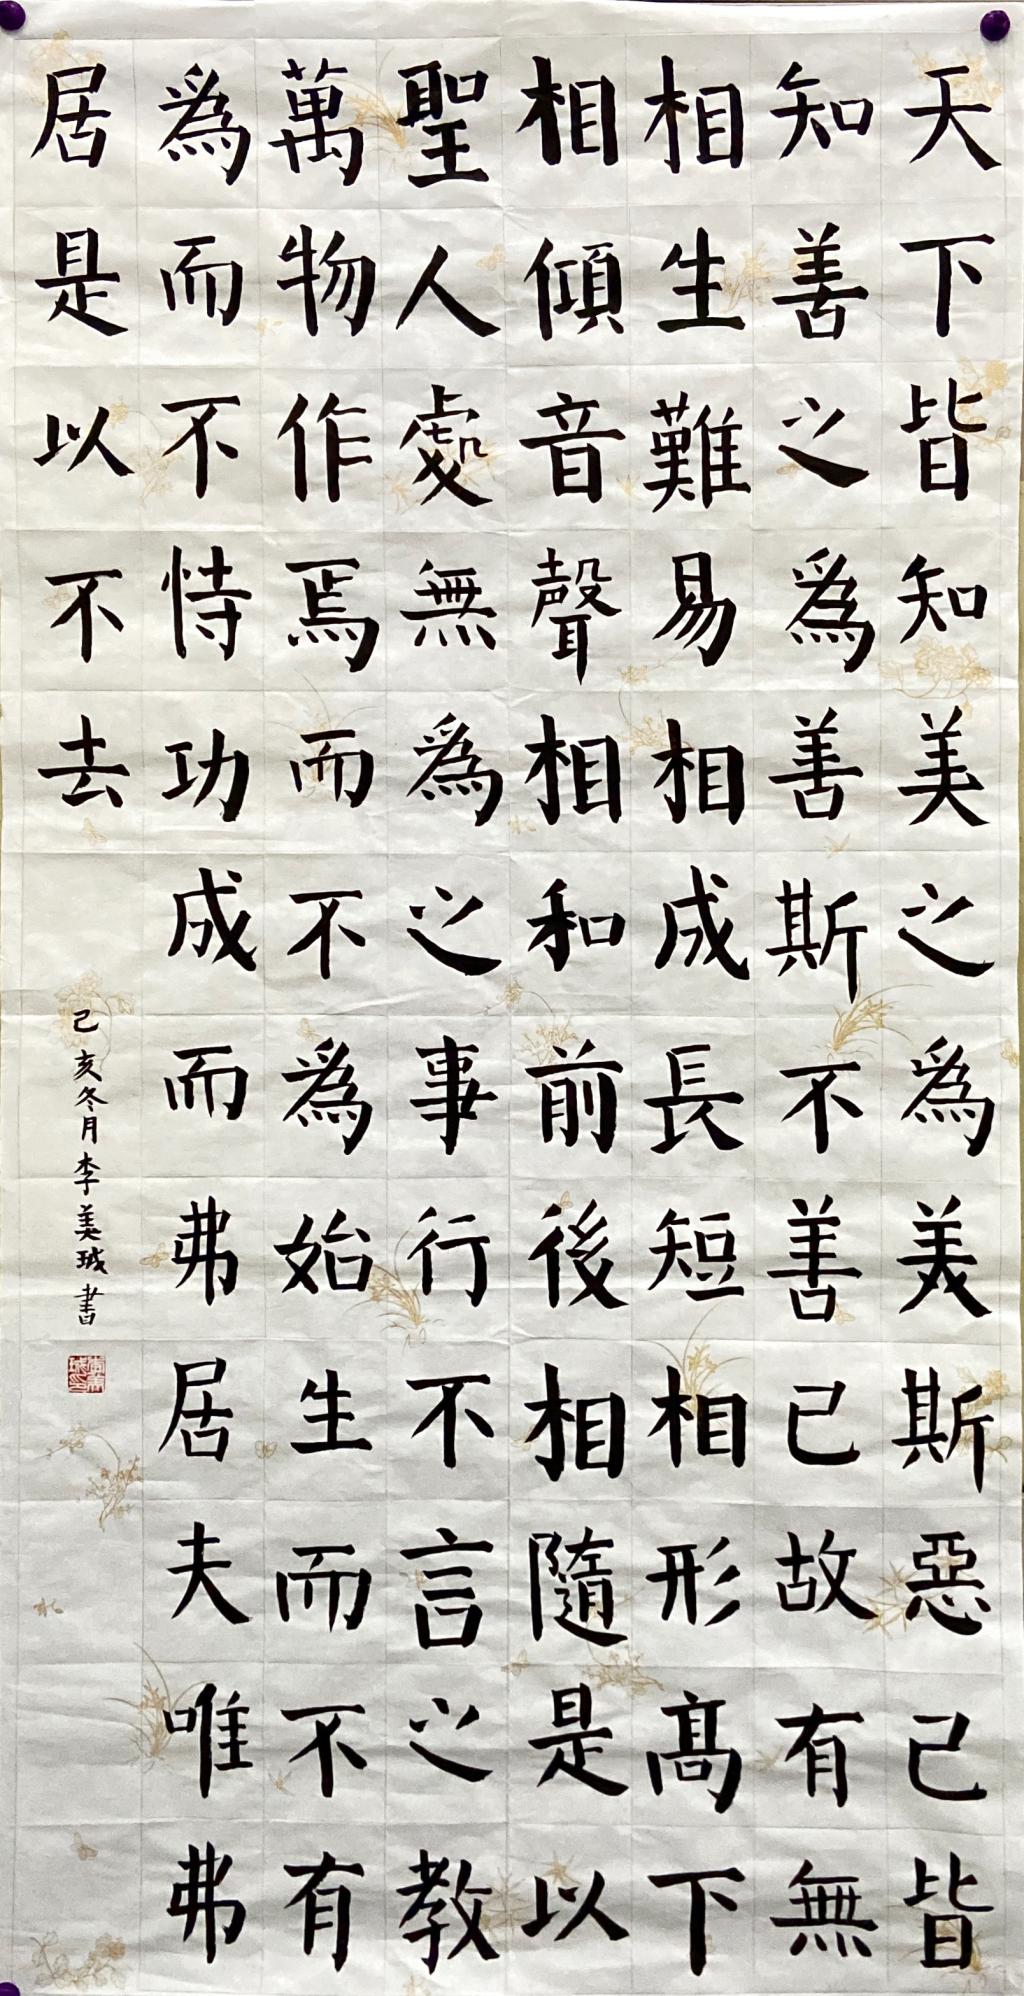 天下皆知美之為美斯惡己皆
知善之為善斯不善己故有無
相生難易相成長短相形高下
相傾音聲相和前後相隨是以
聖人處無為之事行不言之教
萬物作焉而不為始生而不有
為而不恃功成而弗居夫唯弗
居是以不去
己亥冬月李美珹書